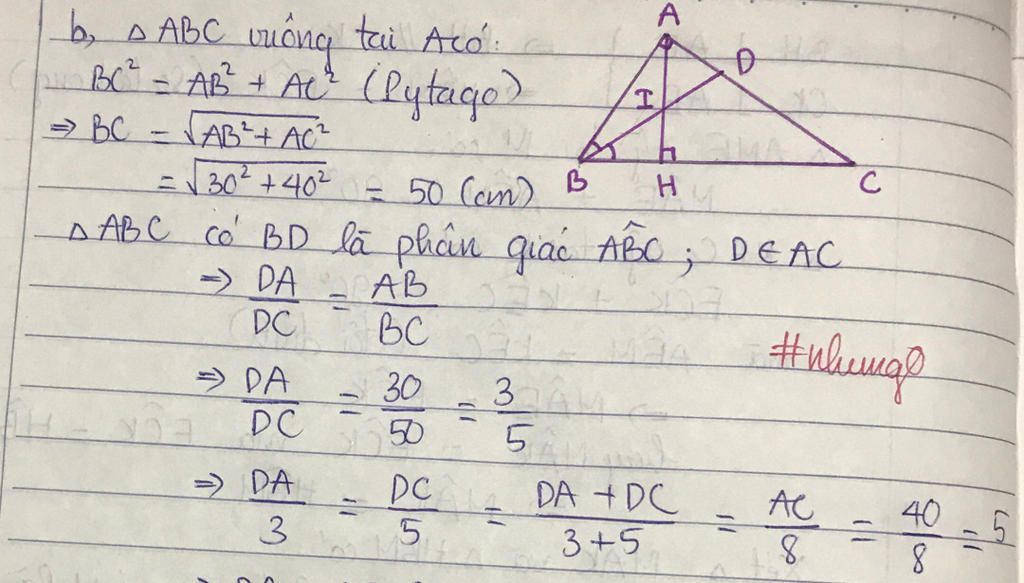 b, △ ABC vuông tại A có:
BC² = AB² + AC² (Pytago)
⇒ BC = √AB² + AC²
= √30² + 40² = 50 (cm)
A
D
I
B
H
C
△ ABC có BD là phân giác AB̂C ; D ∈ AC
⇒ DA/DC = AB/BC
#nhung8
⇒ DA/DC = 30/50 = 3/5
⇒ DA/3 = DC/5 = DA + DC/3+5 = AC/8 = 40/8 = 5